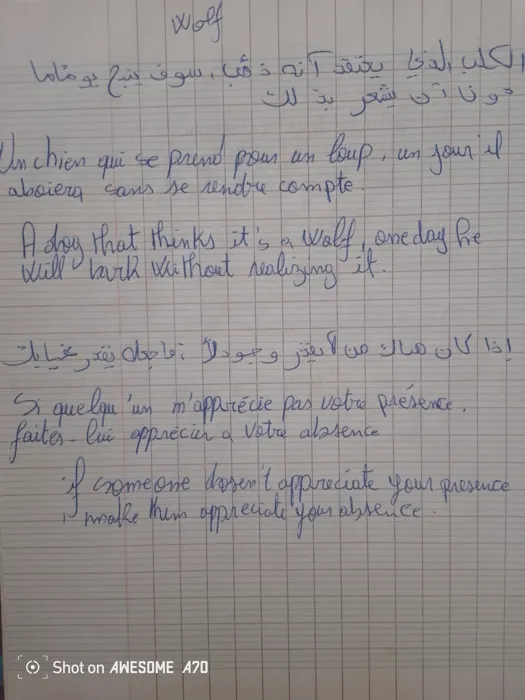 Wolf
الكلب الذي يعتقد آنه ذئب، سوف ينبح يوماما
دونا أن يشعر بذ لك
Un chien qui se prend pour un loup, un jour il
aboiera sans se rendre compte.
A dog that thinks it's a Wolf, one day he
will bark without realizing it.
إذا كان هناك من لا يقدر وجودك، فاجعله يقدر غيابك
Si quelqu'un m'apprécie pas votre présence,
faites-lui apprécier a votre absence
if someone doesn't appreciate your presence
make them appreciate your absence.
Shot on AWESOME A70